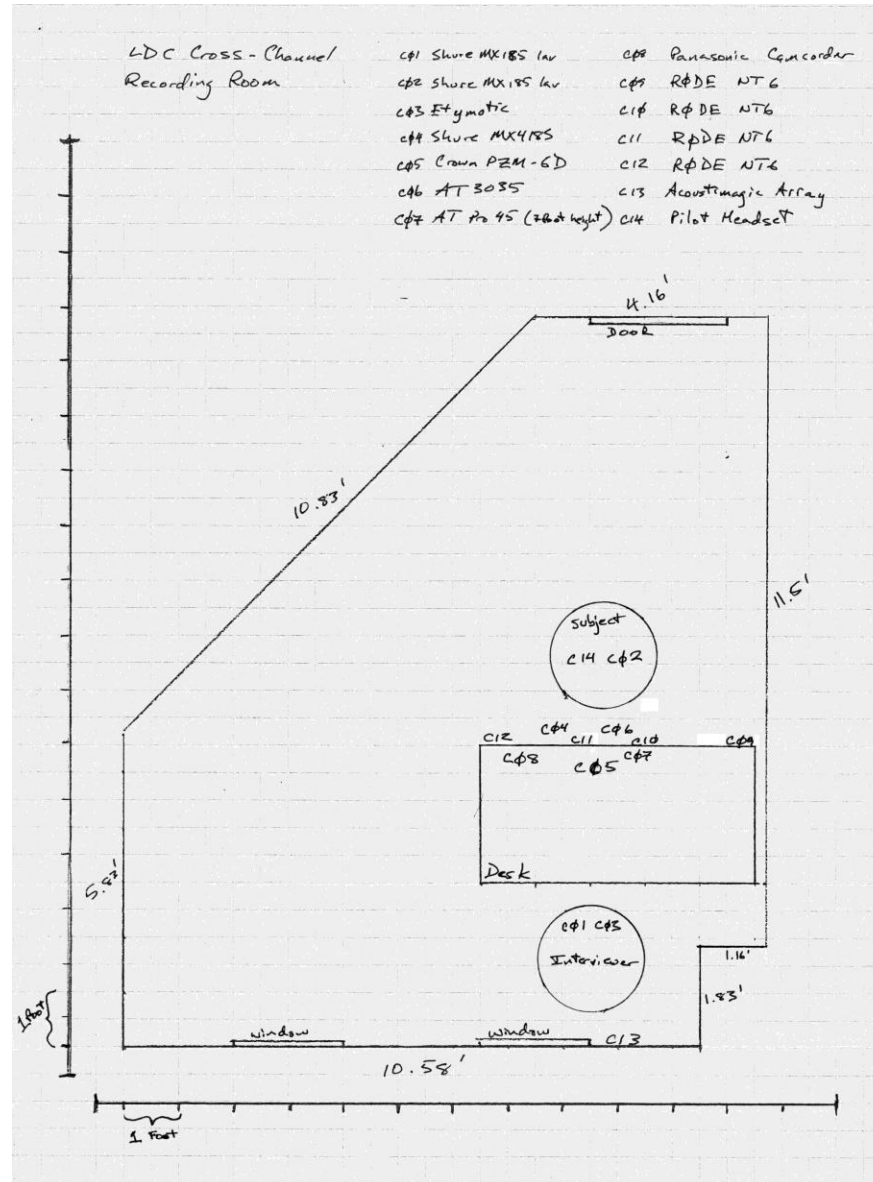 LDC Cross-Channel
Recording Room
CØ1 Shure MX185 lav
CØ2 Shure MX185 lav
CØ3 Etymotic
CØ4 Shure MX418S
CØ5 Crown PZM-6D
CØ6 AT3035
CØ7 AT Pro 45 (7 foot height)
CØ8 Panasonic Camcorder
CØ9 RØDE NT6
C1Ø RØDE NT6
C11 RØDE NT6
C12 RØDE NT6
C13 Acoustimagic Array
C14 Pilot Headset
4.16'
DOOR
10.83'
11.5'
Subject
C14 CØ2
CØ4 CØ6
C12 C11 C1Ø CØ9
CØ8 CØ5 CØ7
Desk
5.83'
CØ1 CØ3
Interviewer
1.16'
1.83'
1 foot
window
window
C13
10.58'
1 Foot